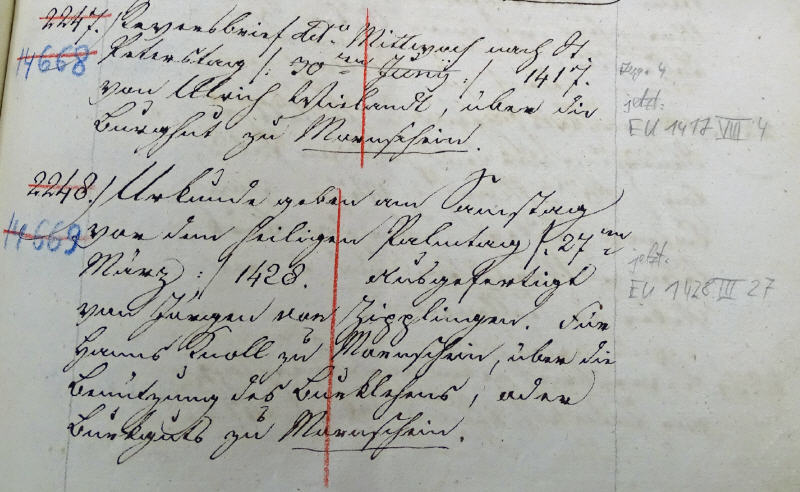 2247. / Reversbrief ddto Mittwoch nach St.
H668 Peterstag /: 30ten Juny :/ 1417.
von Ulrich Wielandt, über die
Burghut zu Mornschein.
jetzt:
EU 1417 VIII 4
2248. / Urkunde geben am Samstag
H669 vor dem heiligen Palmtag /: 27ten
März :/ 1428. Ausgefertigt
von Jörgen von Zipplingen. Für
Hanns Knoll zu Mornschein, über die
Benützung des Burklehens, oder
Burkguts zu Mornschein.
jetzt:
EU 1428 III 27